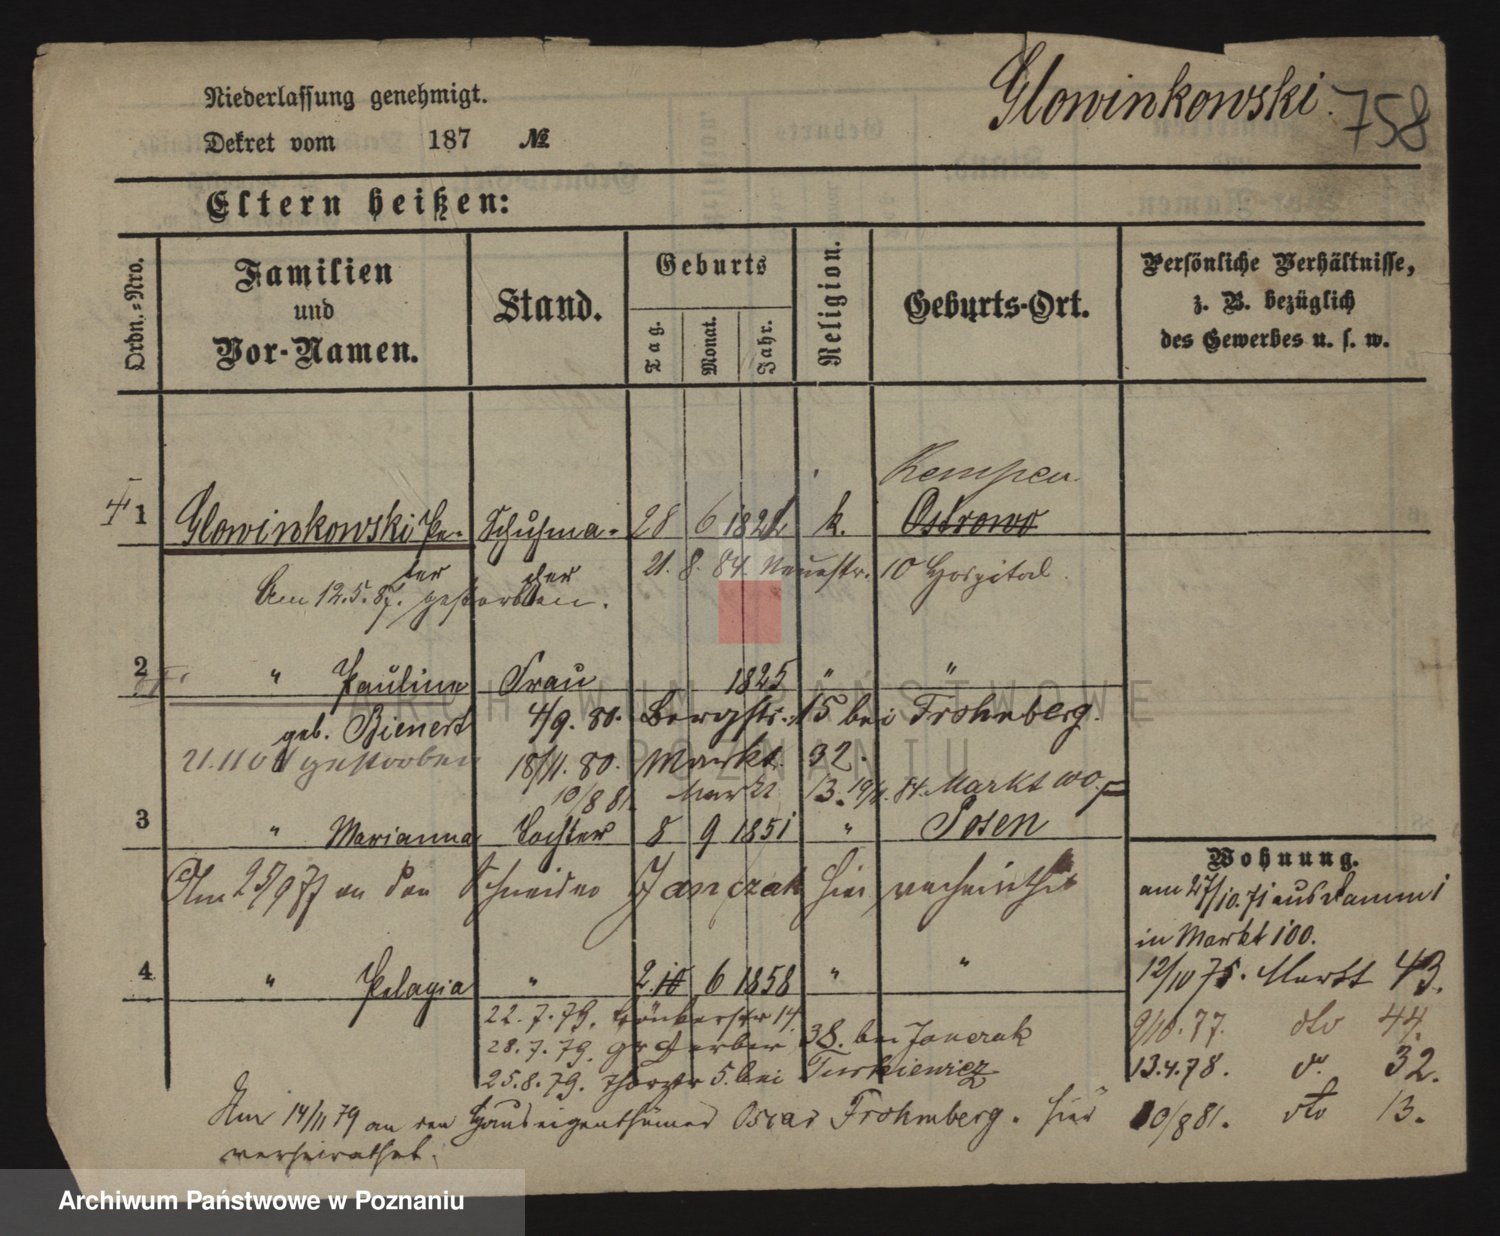 Niederlassung genehmigt.
Glowinkowski. 758
Dekret vom 187 №
Eltern heißen:
Ordn.-Nro.
Familien und Vor-Namen.
Stand.
Geburts
Tag.
Monat.
Jahr.
Religion.
Geburts-Ort.
Persönliche Verhältnisse,
z. B. bezüglich
des Gewerbes u. s. w.
Kempen
1 Glowinkowski Pe- Schuhma- 28 6 k. Ostrowo
ter cher 21. 8. 84. Neuestr. 10 Hospital.
Am 12.5.87. gestorben.
2 " Pauline Frau 1825 " "
geb. Bienert 4/9. 80. Bergstr. 15 bei Frohnberg.
gestorben 18/11. 80. Markt 32.
10/8 81. Markt 13. 84. Markt
3 " Marianna Tochter 8 9 1851 " Posen
Am an den Schneider Janczak hier verheirathet
4 " Pelagia " 2. 10 6 1858 " "
22. 7. 79. 14.
28. 7. 79. gr Gerber 38. bei Janczak
25. 8. 79. Thorstr 5. bei Turkiewicz
Am 14/11 79 an den Hauseigenthümer Oscar Frohmberg. hier
verheirathet.
Wohnung.
am 27/10. 71 aus
in Markt 100.
12/10 75. Markt 43.
9/10. 77. dto 44.
13.4.78. do 32.
10/8 81. dto 13.
ARCHIWUM PAŃSTWOWE
W POZNANIU
Archiwum Państwowe w Poznaniu